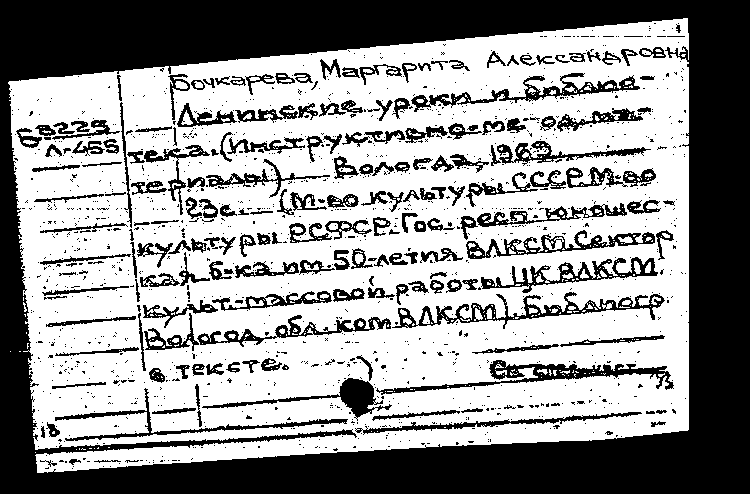 Бочкарева, Маргарита Александровна
Б8225
Л-455
Ленинские уроки и библио-
тека. (Инструктивно-мет од. ма-
териалы). Вологда, 1969.
23с. (М-во культуры СССР. М-во
культуры РСФСР. Гос. респ. юношес-
кая б-ка им. 50-летия ВЛКСМ. Сектор
культ.-массовой работы ЦК ВЛКСМ.
Вологод. обл. ком. ВЛКСМ). Библиогр.
в тексте.
См. след. карт.
18